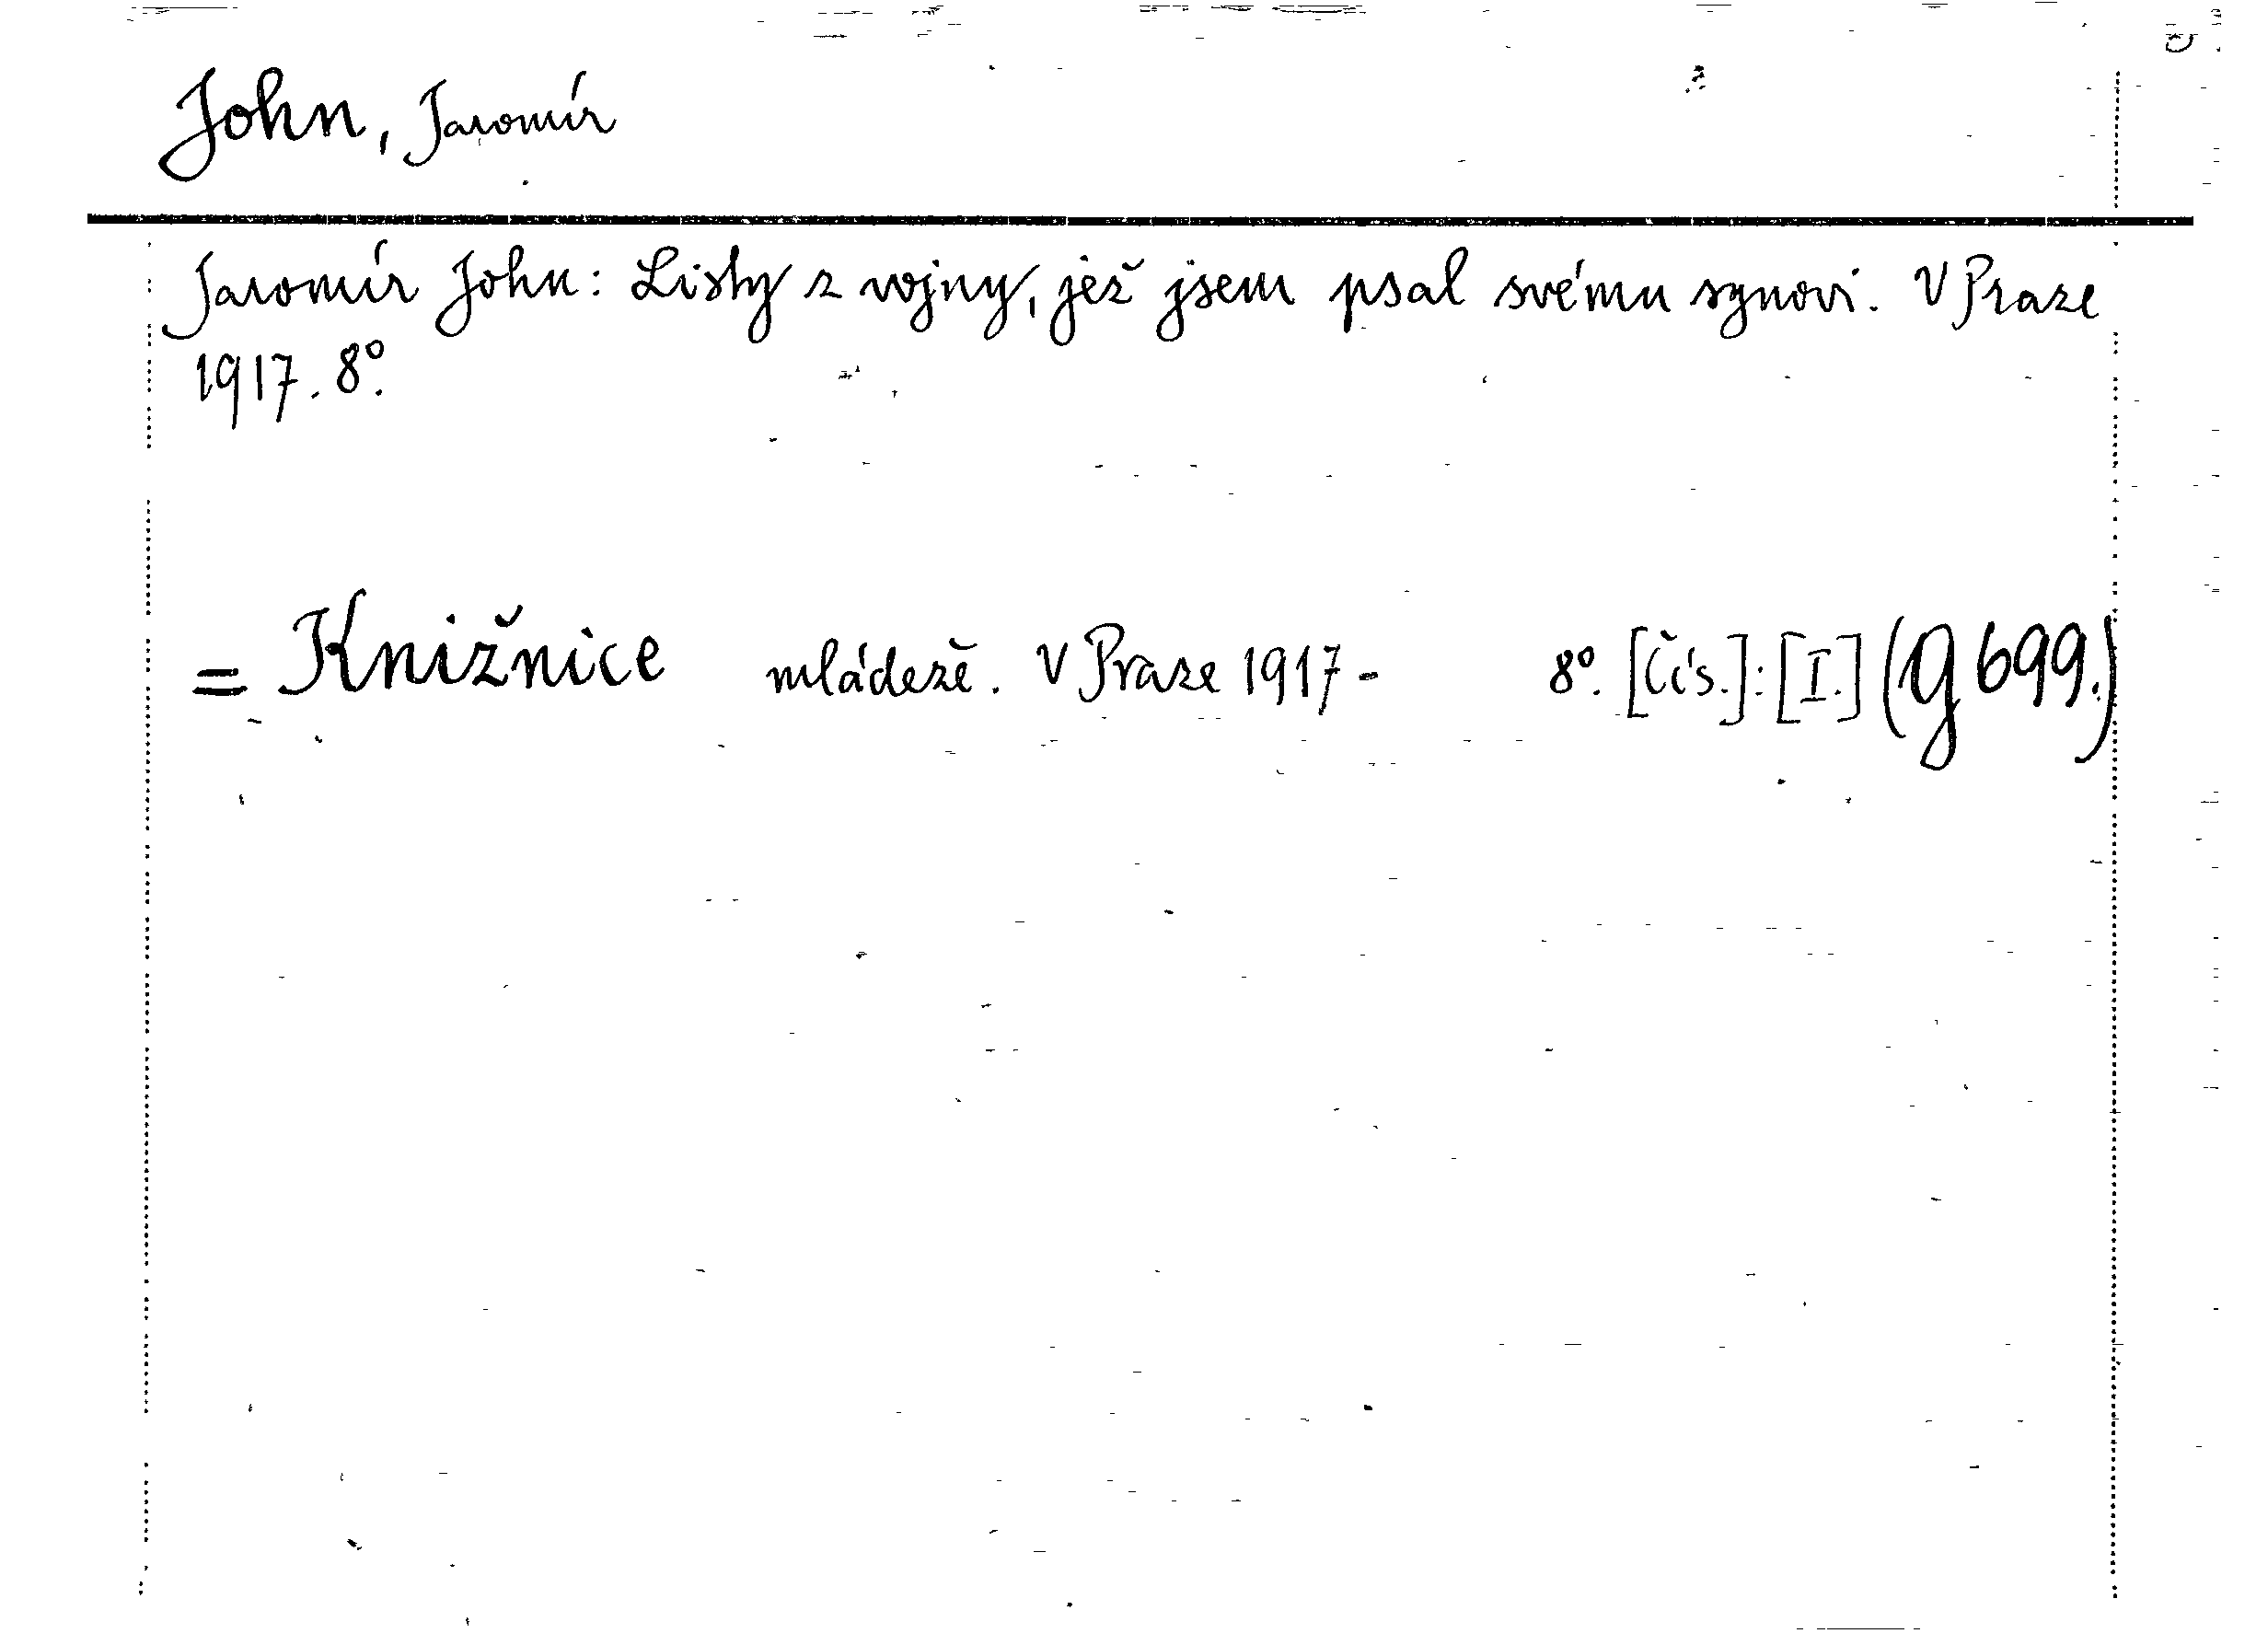 John, Jaromír
Jaromír John: Listy z vojny, jež jsem psal svému synovi. V Praze
1917. 8º.
= Knižnice mládeže. V Praze 1917- 8º. [Čís.]: [I.] (g 699.)